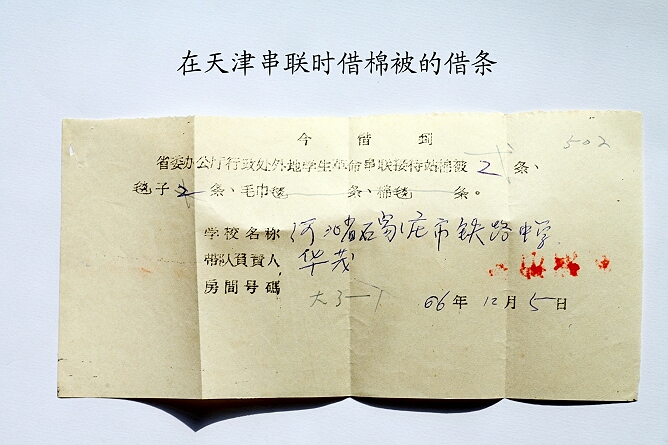 在天津串联时借棉被的借条
502
今借到
省委办公厅行政处外地学生革命串联接待站棉被 2 条、
毯子 2 条、毛巾毯 条、棉毯 条。
学校名称 河北省石家庄市铁路中学
梯队負責人 华茂
房間号碼 大3一下
66年 12月 5日